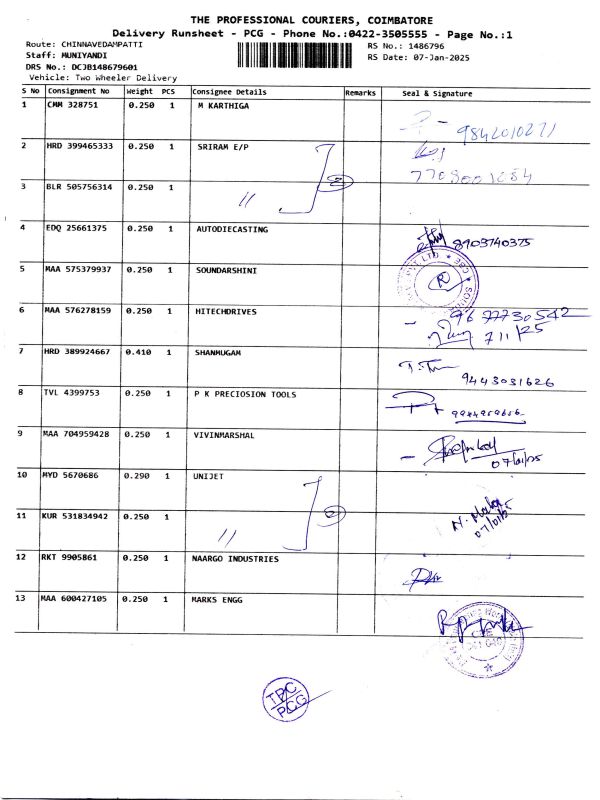 THE PROFESSIONAL COURIERS, COIMBATORE
Delivery Runsheet - PCG - Phone No.:0422-3505555 - Page No.:1
Route: CHINNAVEDAMPATTI
RS No.: 1486796
Staff: MUNIYANDI
RS Date: 07-Jan-2025
DRS No.: DCJB148679601
Vehicle: Two Wheeler Delivery
S No Consignment No Weight PCS Consignee Details Remarks Seal & Signature
1 CMM 328751 0.250 1 M KARTHIGA
2 HRD 399465333 0.250 1 SRIRAM E/P
3 BLR 505756314 0.250 1 " 2
4 EDQ 25661375 0.250 1 AUTODIECASTING 8903740375
5 MAA 575379937 0.250 1 SOUNDARSHINI
6 MAA 576278159 0.250 1 HITECHDRIVES
7/1/25
7 HRD 389924667 0.410 1 SHANMUGAM
9443031626
8 TVL 4399753 0.250 1 P K PRECIOSION TOOLS
9 MAA 704959428 0.250 1 VIVINMARSHAL
07/01/25
10 MYD 5670686 0.290 1 UNIJET
11 KUR 531834942 0.250 1 " 2
07/01/25
12 RKT 9905861 0.250 1 NAARGO INDUSTRIES
13 MAA 600427105 0.250 1 MARKS ENGG
TPC
PCG